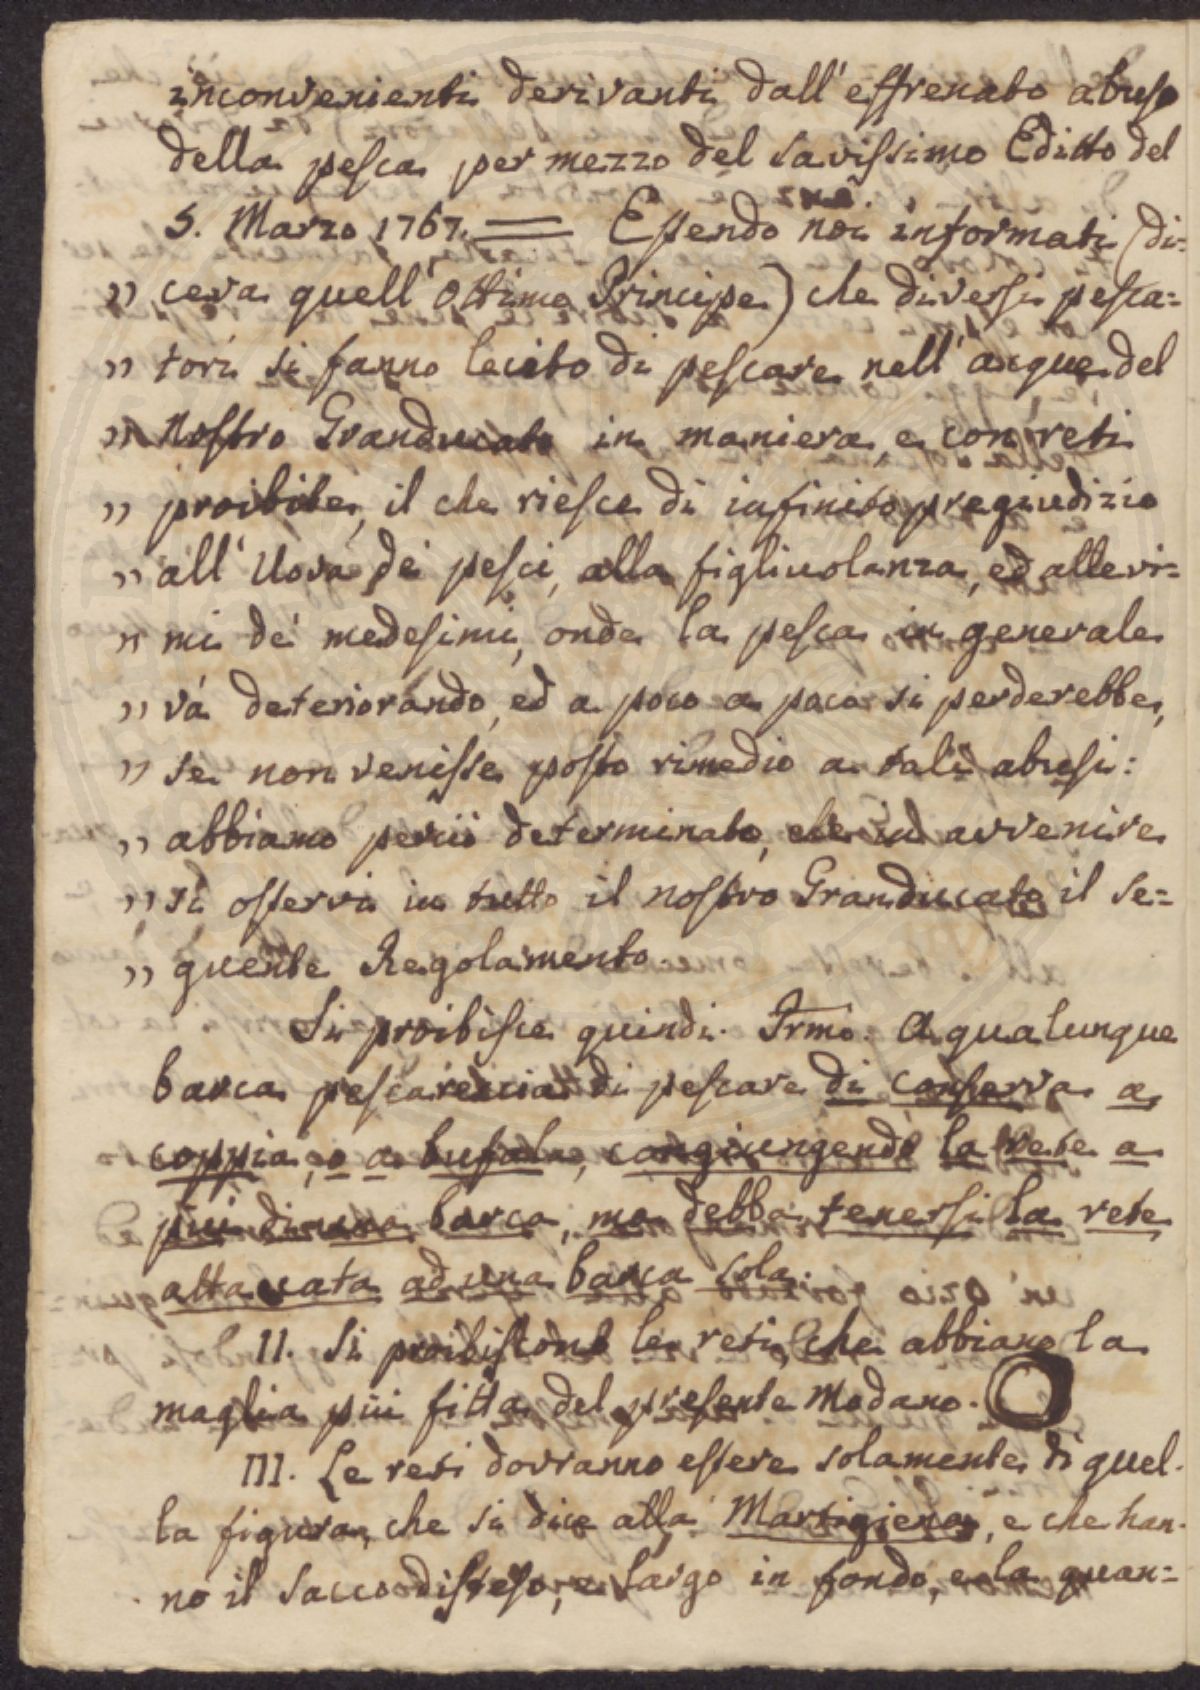 inconvenienti derivanti dall'effrenato abuso
della pesca per mezzo del savissimo Editto del
5. Marzo 1767. = Essendo noi informati (di-
„ ceva quell'Ottimo Principe) che diversi pesca=
„ tori si fanno lecito di pescare nell'acque del
„ Nostro Granducato in maniera, e con reti
„ proibite, il che riesce di infinito pregiudizio
„ all'Uova de' pesci, alla figliuolanza, ed alle vi=
„ mi de' medesimi, onde la pesca in generale
„ và deteriorando, ed a poco a poco si perderebbe,
„ se non venisse posto rimedio a tali abusi:
„ abbiamo perciò determinato, che in avvenire
„ si osservi in tutto il nostro Granducato il se=
„ guente Regolamento.
Si proibisce quindi. Prmo. A qualunque
barca pescareccia di pescare di conserva a
coppia, o a bufala, congiungendo la rete a
più di una barca, ma debba tenersi la rete
attaccata ad una barca sola.
II. Si proibiscono le reti, che abbiano la
maglia più fitta del presente Modano.
III. Le reti dovranno essere solamente di quel-
la figura, che si dice alla Martigiena, e che han-
no il sacco disteso, e largo in fondo, e la quan=